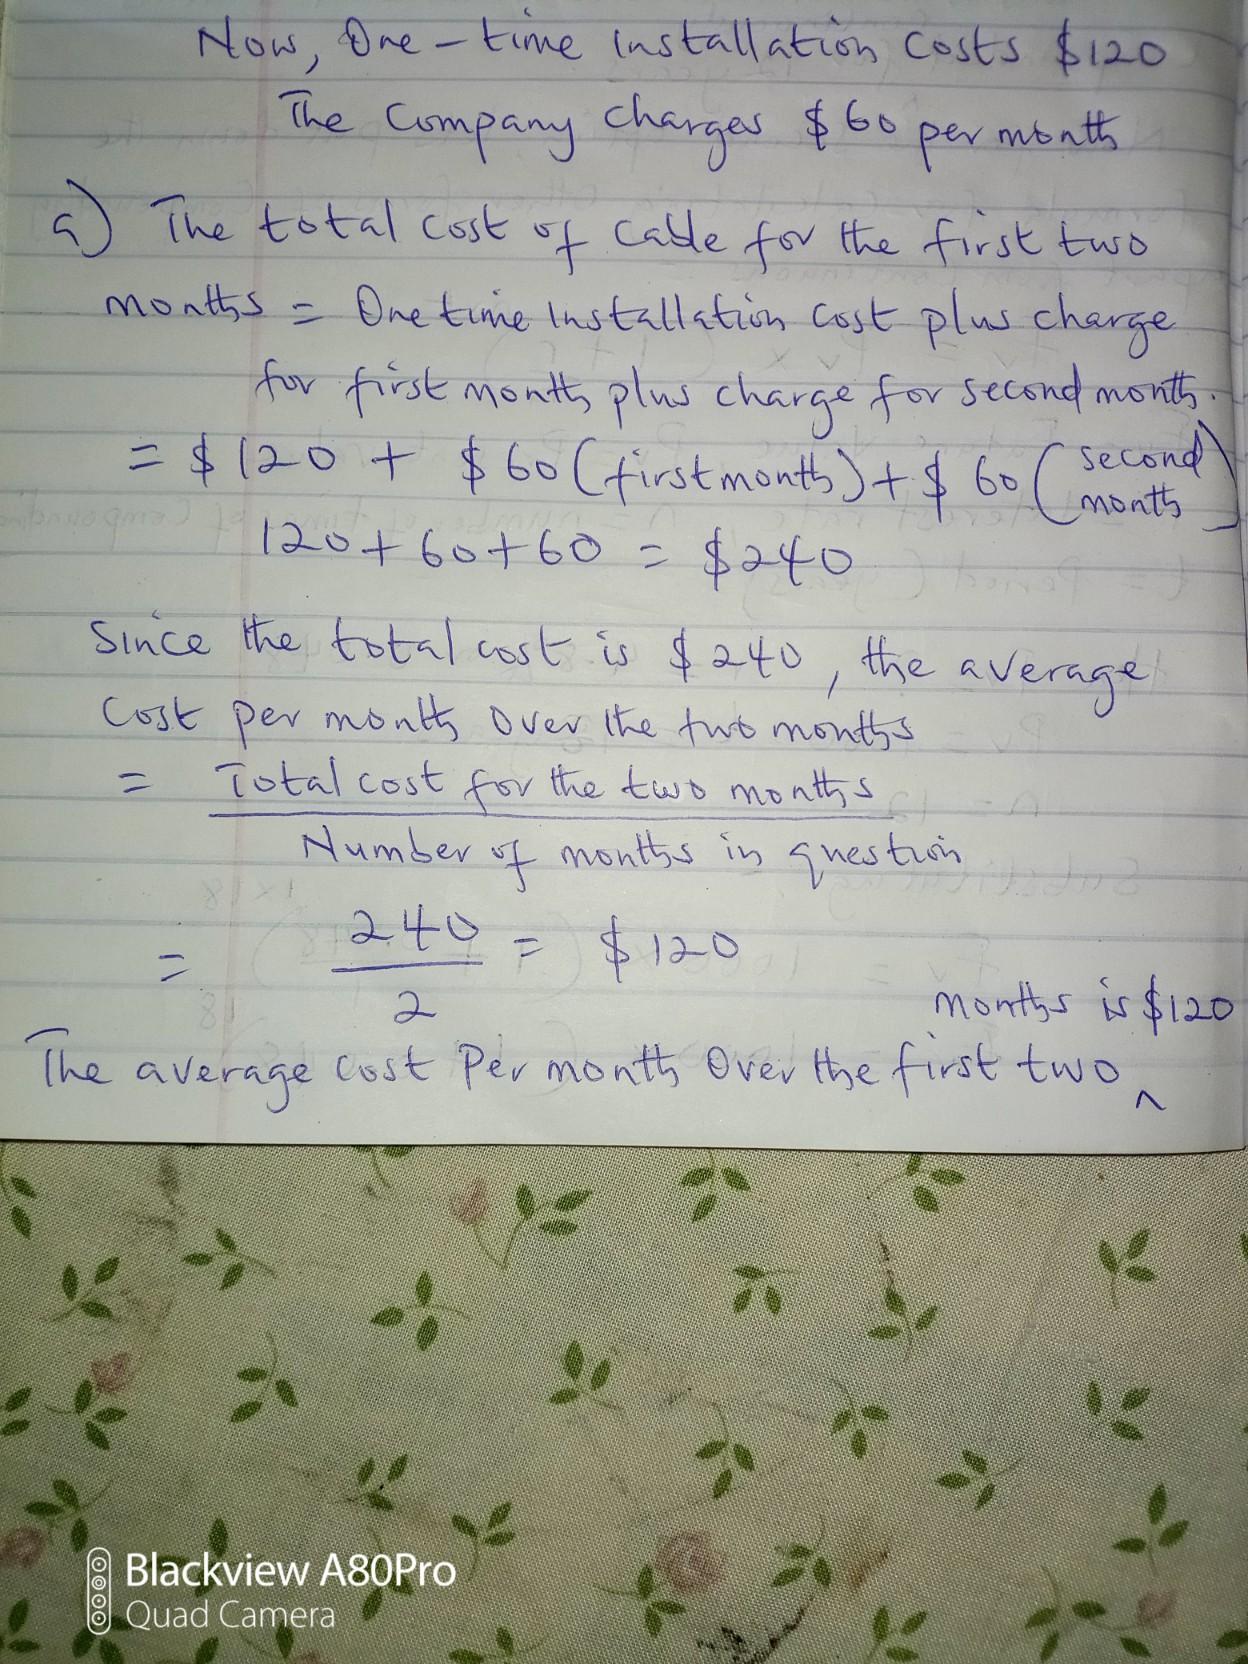 Now, One-time installation costs $120
The Company charges $60 per month
a) The total cost of cable for the first two
months = One time installation cost plus charge
for first month plus charge for second month.
= $120 + $60 (first month) + $60 (second month)
120+60+60 = $240
Since the total cost is $240, the average
cost per month over the two months
= Total cost for the two months
Number of months in question
= 240 = $120
2
The average cost Per month Over the first two ^ months is $120
Blackview A80Pro
Quad Camera